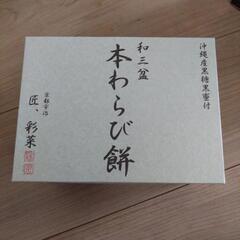 沖縄産黒糖黒蜜付
和三盆
本わらび餅
京都宇治
匠、彩菜